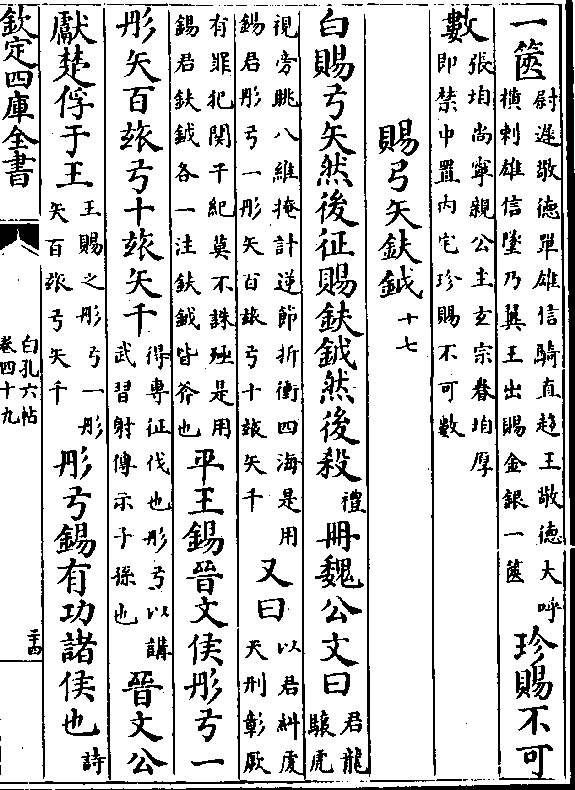 一篋尉遲敬德單雄信騎直趨王敬德大呼橫刺雄信墜乃翼王出賜金銀一篋珍賜不可
數張垍尚寧親公主玄宗眷垍厚即禁中置內宅珍賜不可數
賜弓矢鈇鉞十七
白賜弓矢然後征賜鈇鉞然後殺禮冊魏公文曰君龍驤虎
視旁眺八維掩計逆節折衝四海是用錫君彤弓一彤矢百玈弓十玈矢千又曰以君糾虔天刑彰厥
有罪犯關干紀莫不誅殛是用錫君鈇鉞各一注鈇鉞皆斧也平王錫晉文侯彤弓一
彤矢百玈弓十玈矢千得專征伐也彤弓以講武習射傳示子孫也晉文公
獻楚俘于王王賜之彤弓一彤矢百玈弓矢千彤弓錫有功諸侯也詩
欽定四庫全書
白孔六帖
卷四十九
二十四